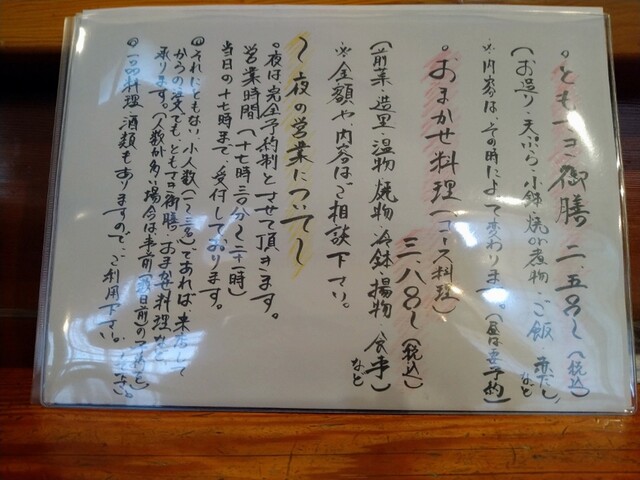 。ともマコ御膳 二、五〇〇〜(税込)
(お造り・天ぷら・小鉢・焼or煮物・ご飯・蒸し など
※内容は、その時によって変わります。(昼は要予約)
。おまかせ料理(コース料理)
三、八〇〇〜(税込)
(前菜・造里・温物・焼物・冷鉢・揚物・食事)など
※金額や内容はご相談下さい。
〜夜の営業について〜
。夜は完全予約制とさせて頂きます。
営業時間(十七時三〇分〜二十一時)
当日の十七時まで、受付しております。
それにともない、小人数(1〜3名)であれば、来店して
からの注文でも、ともマコ御膳・おまかせ料理など、
承ります。(人数が多い場合は事前(前日前)の
一品料理、酒類もありますので、ご利用下さい。